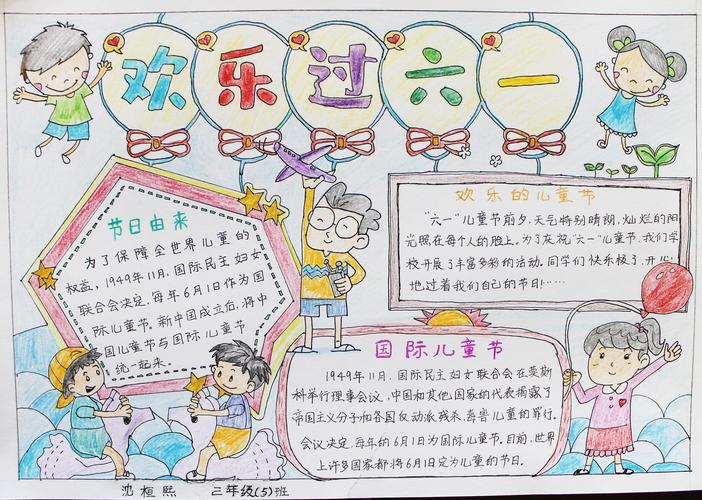 欢乐过六一
节日由来
为了保障全世界儿童的
权益，1949年11月，国际民主妇女
联合会决定，每年6月1日作为国
际儿童节。新中国成立后，将中
国儿童节与国际儿童节
统一起来。
欢乐的儿童节
"六一"儿童节前夕，天气特别晴朗，灿烂的阳
光照在每个人的脸上。为了庆祝"六一"儿童节，我们学
校开展了丰富多彩的活动。同学们快乐极了，开心
地过着我们自己的节日！……
国际儿童节
1949年11月，国际民主妇女联合会在莫斯
科举行理事会议，中国和其他国家的代表揭露了
帝国主义分子和各国反动派残杀、毒害儿童的罪行。
会议决定，每年的6月1日为国际儿童节。目前，世界
上许多国家都将6月1日定为儿童的节日。
沈桓熙 三年级(5)班